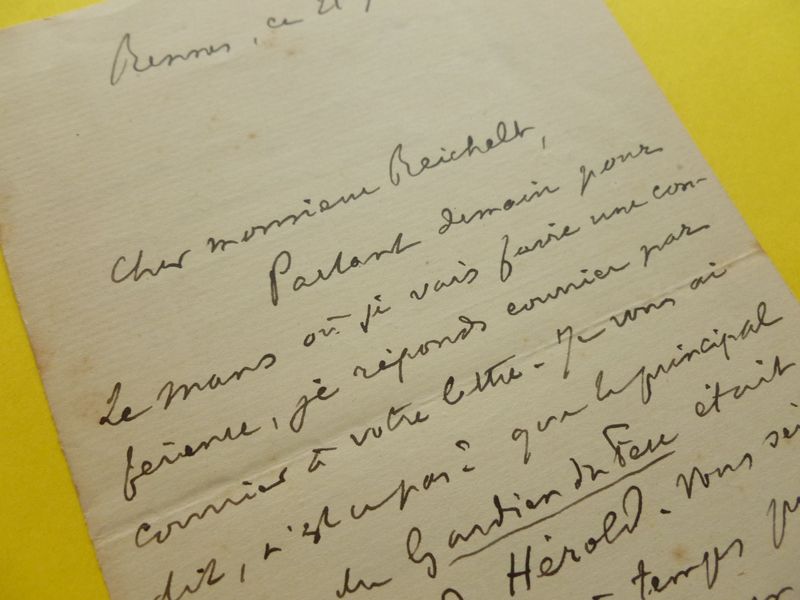 Rennes, ce 21
Cher monsieur Reichelt,
Partant demain pour
Le Mans où je vais faire une con-
férence, je réponds courrier par
courrier à votre lettre. Je vous ai
dit, n'est ce pas? que le principal
du Gardien du Feu était
Hérold. Vous
à temps